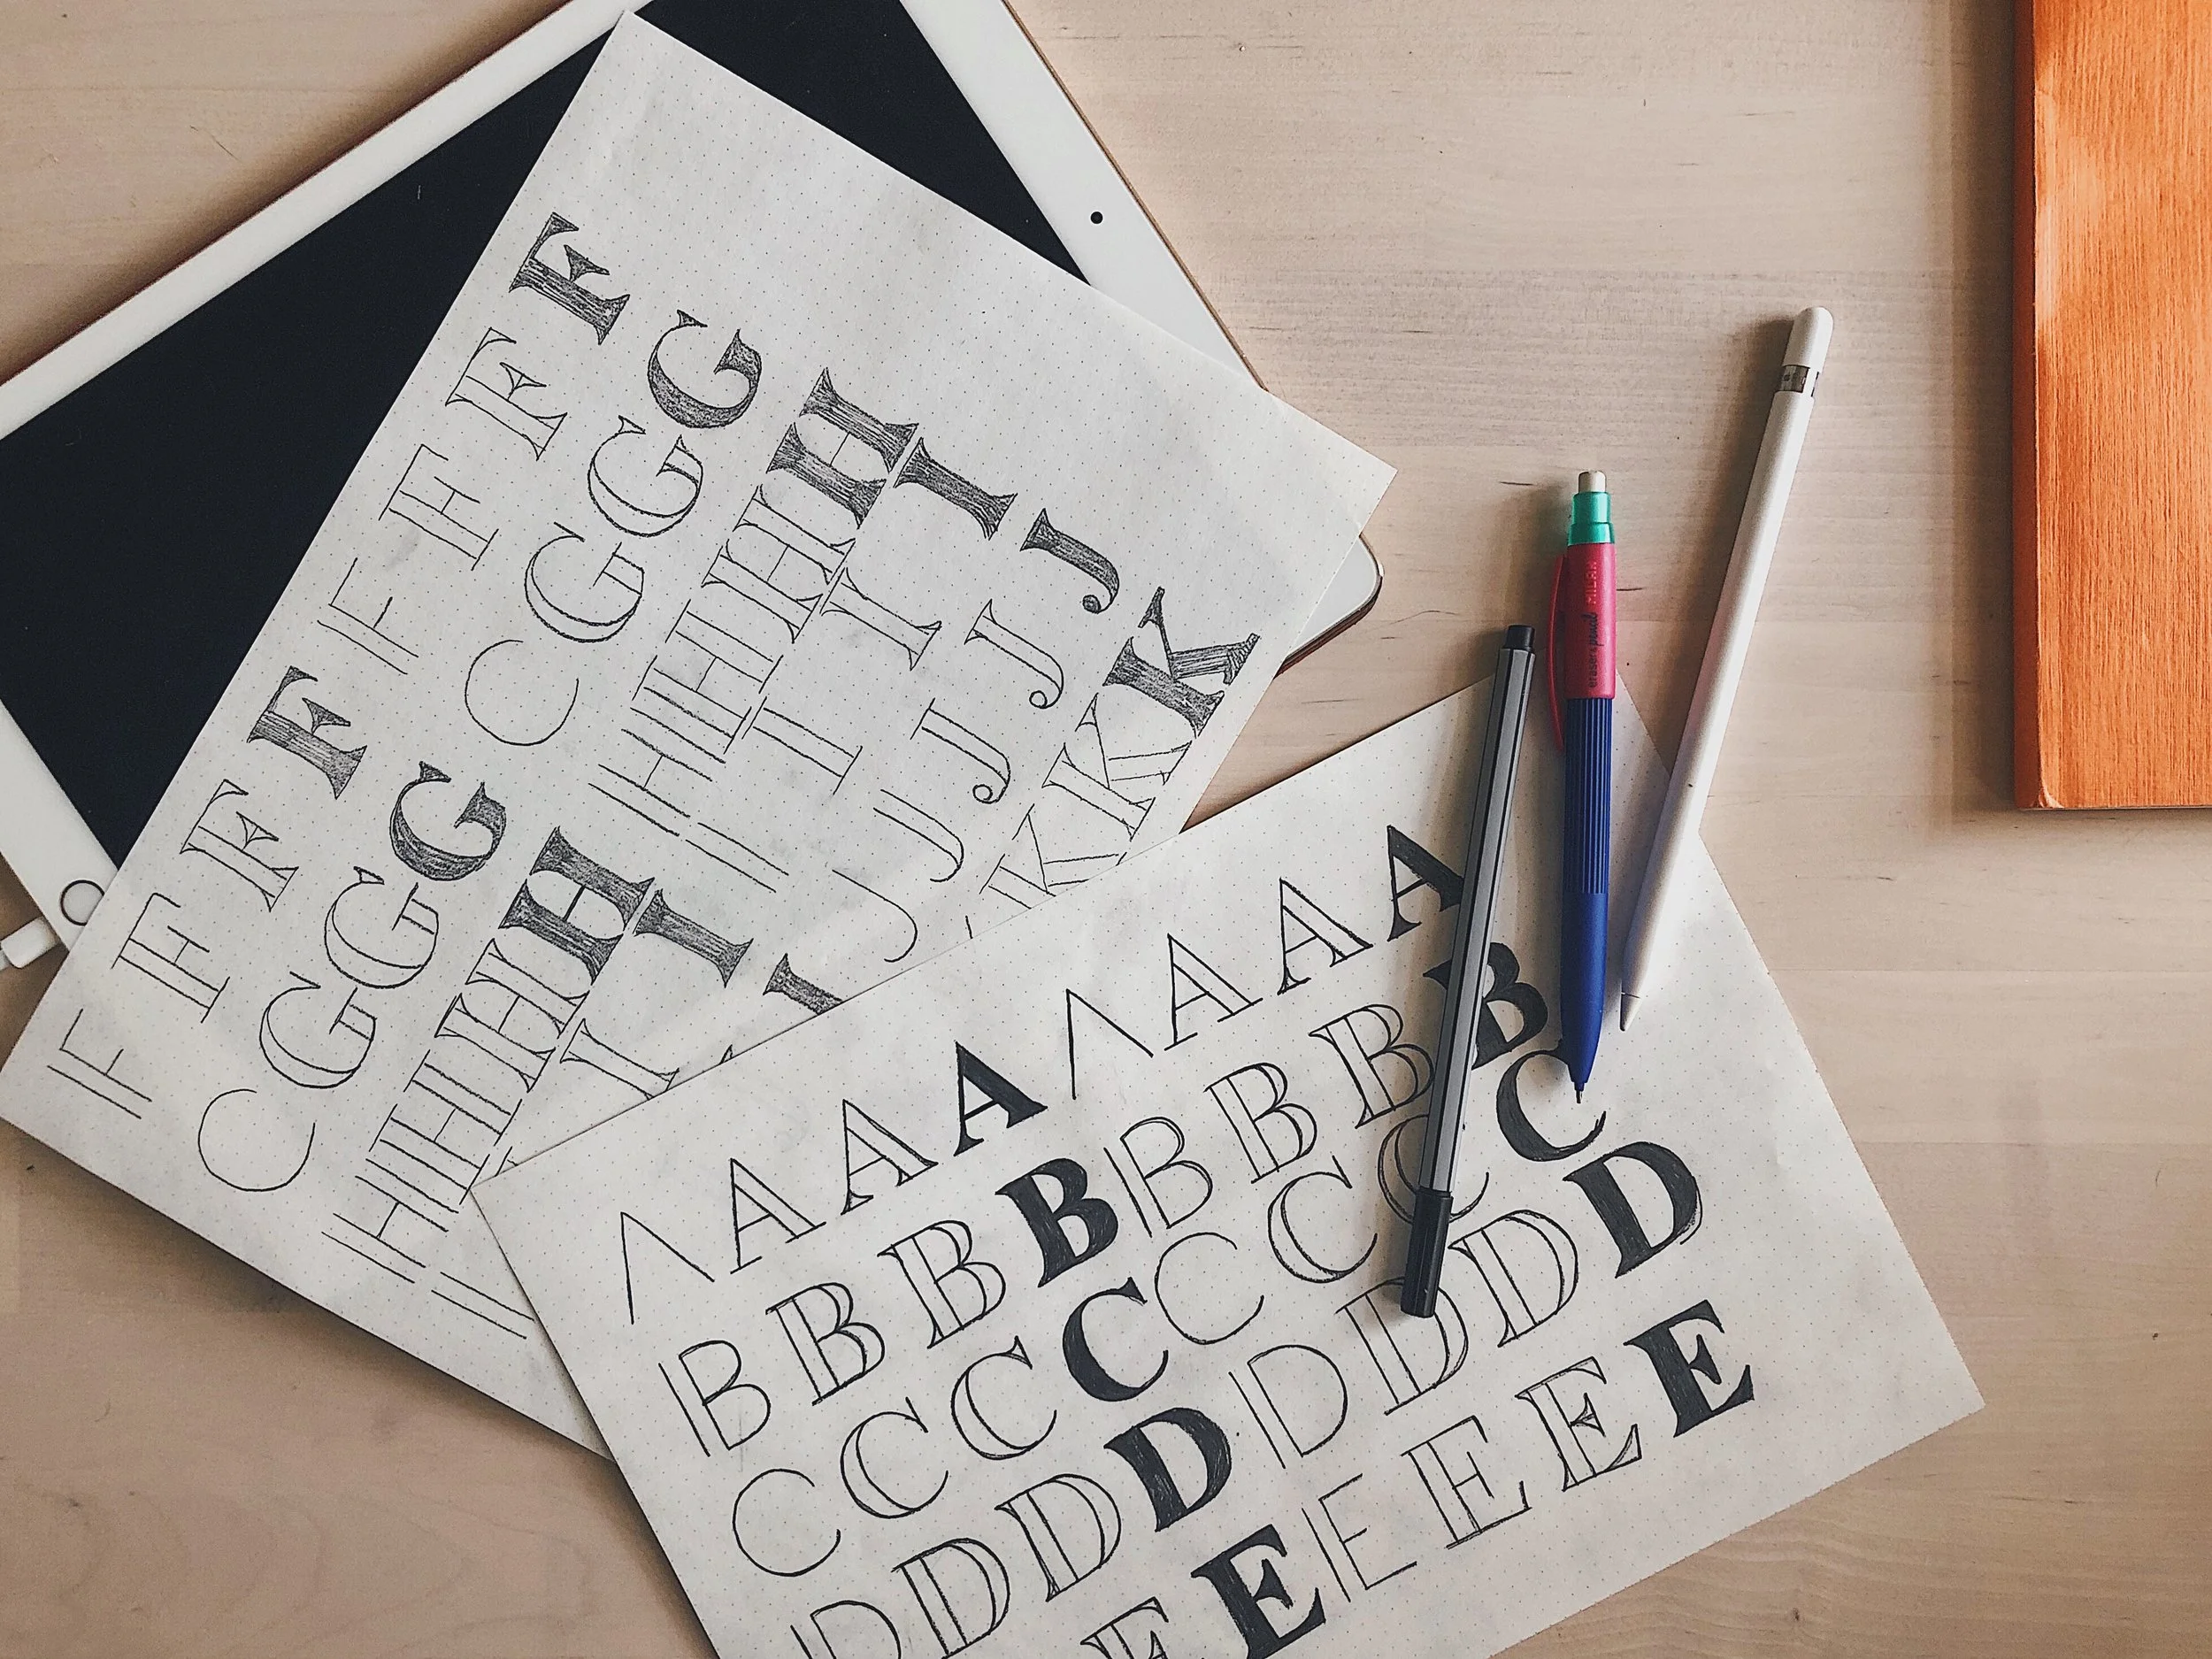 F F F F F F F F
C G G G C G G G
H H H H H H H H
I I I I I I I
J J J J J
K K K
A A A A A A A A
B B B B B B B B
C C C C C C C C
D D D D D D D D
E E E E E E
MILAN